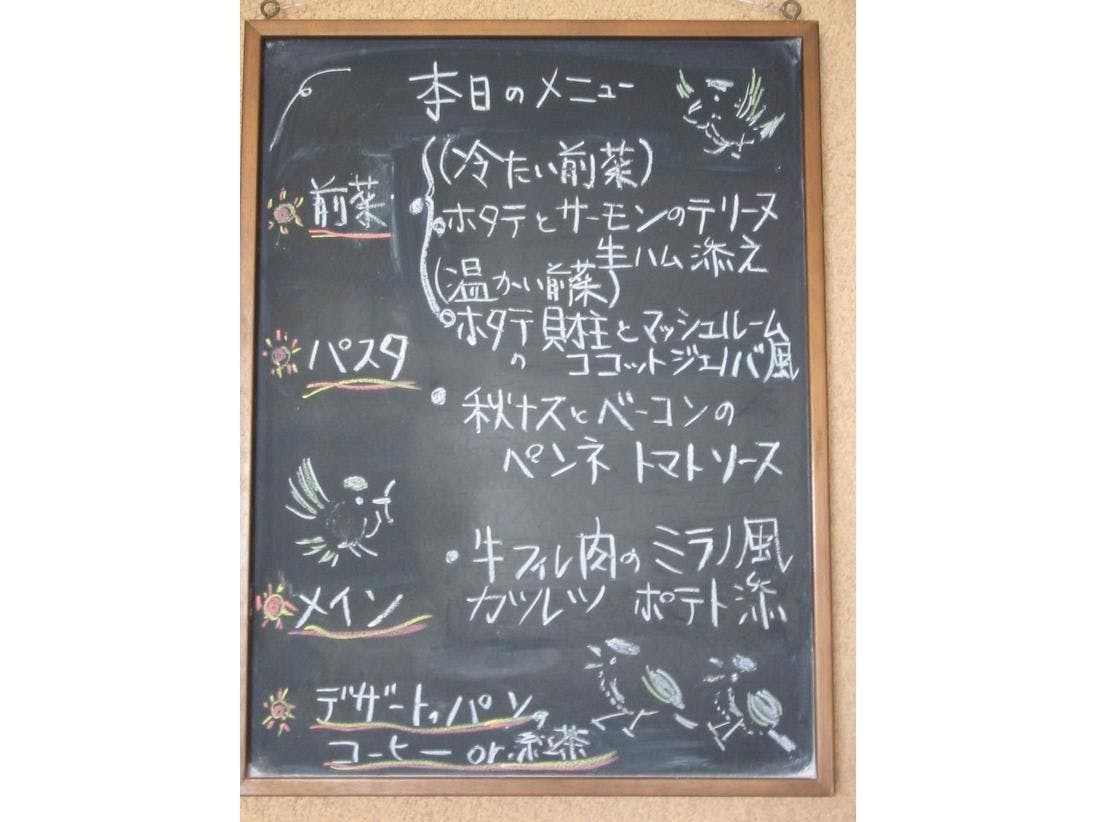 本日のメニュー
(冷たい前菜)
前菜
ホタテとサーモンのテリーヌ
生ハム添え
(温かい前菜)
ホタテ貝柱とマッシュルーム
の ココットジェルバ風
パスタ
秋ナスとベーコンの
ペンネ トマトソース
牛フィレ肉のミラノ風
カツレツ ポテト添
メイン
デザート、パン、
コーヒー or 紅茶